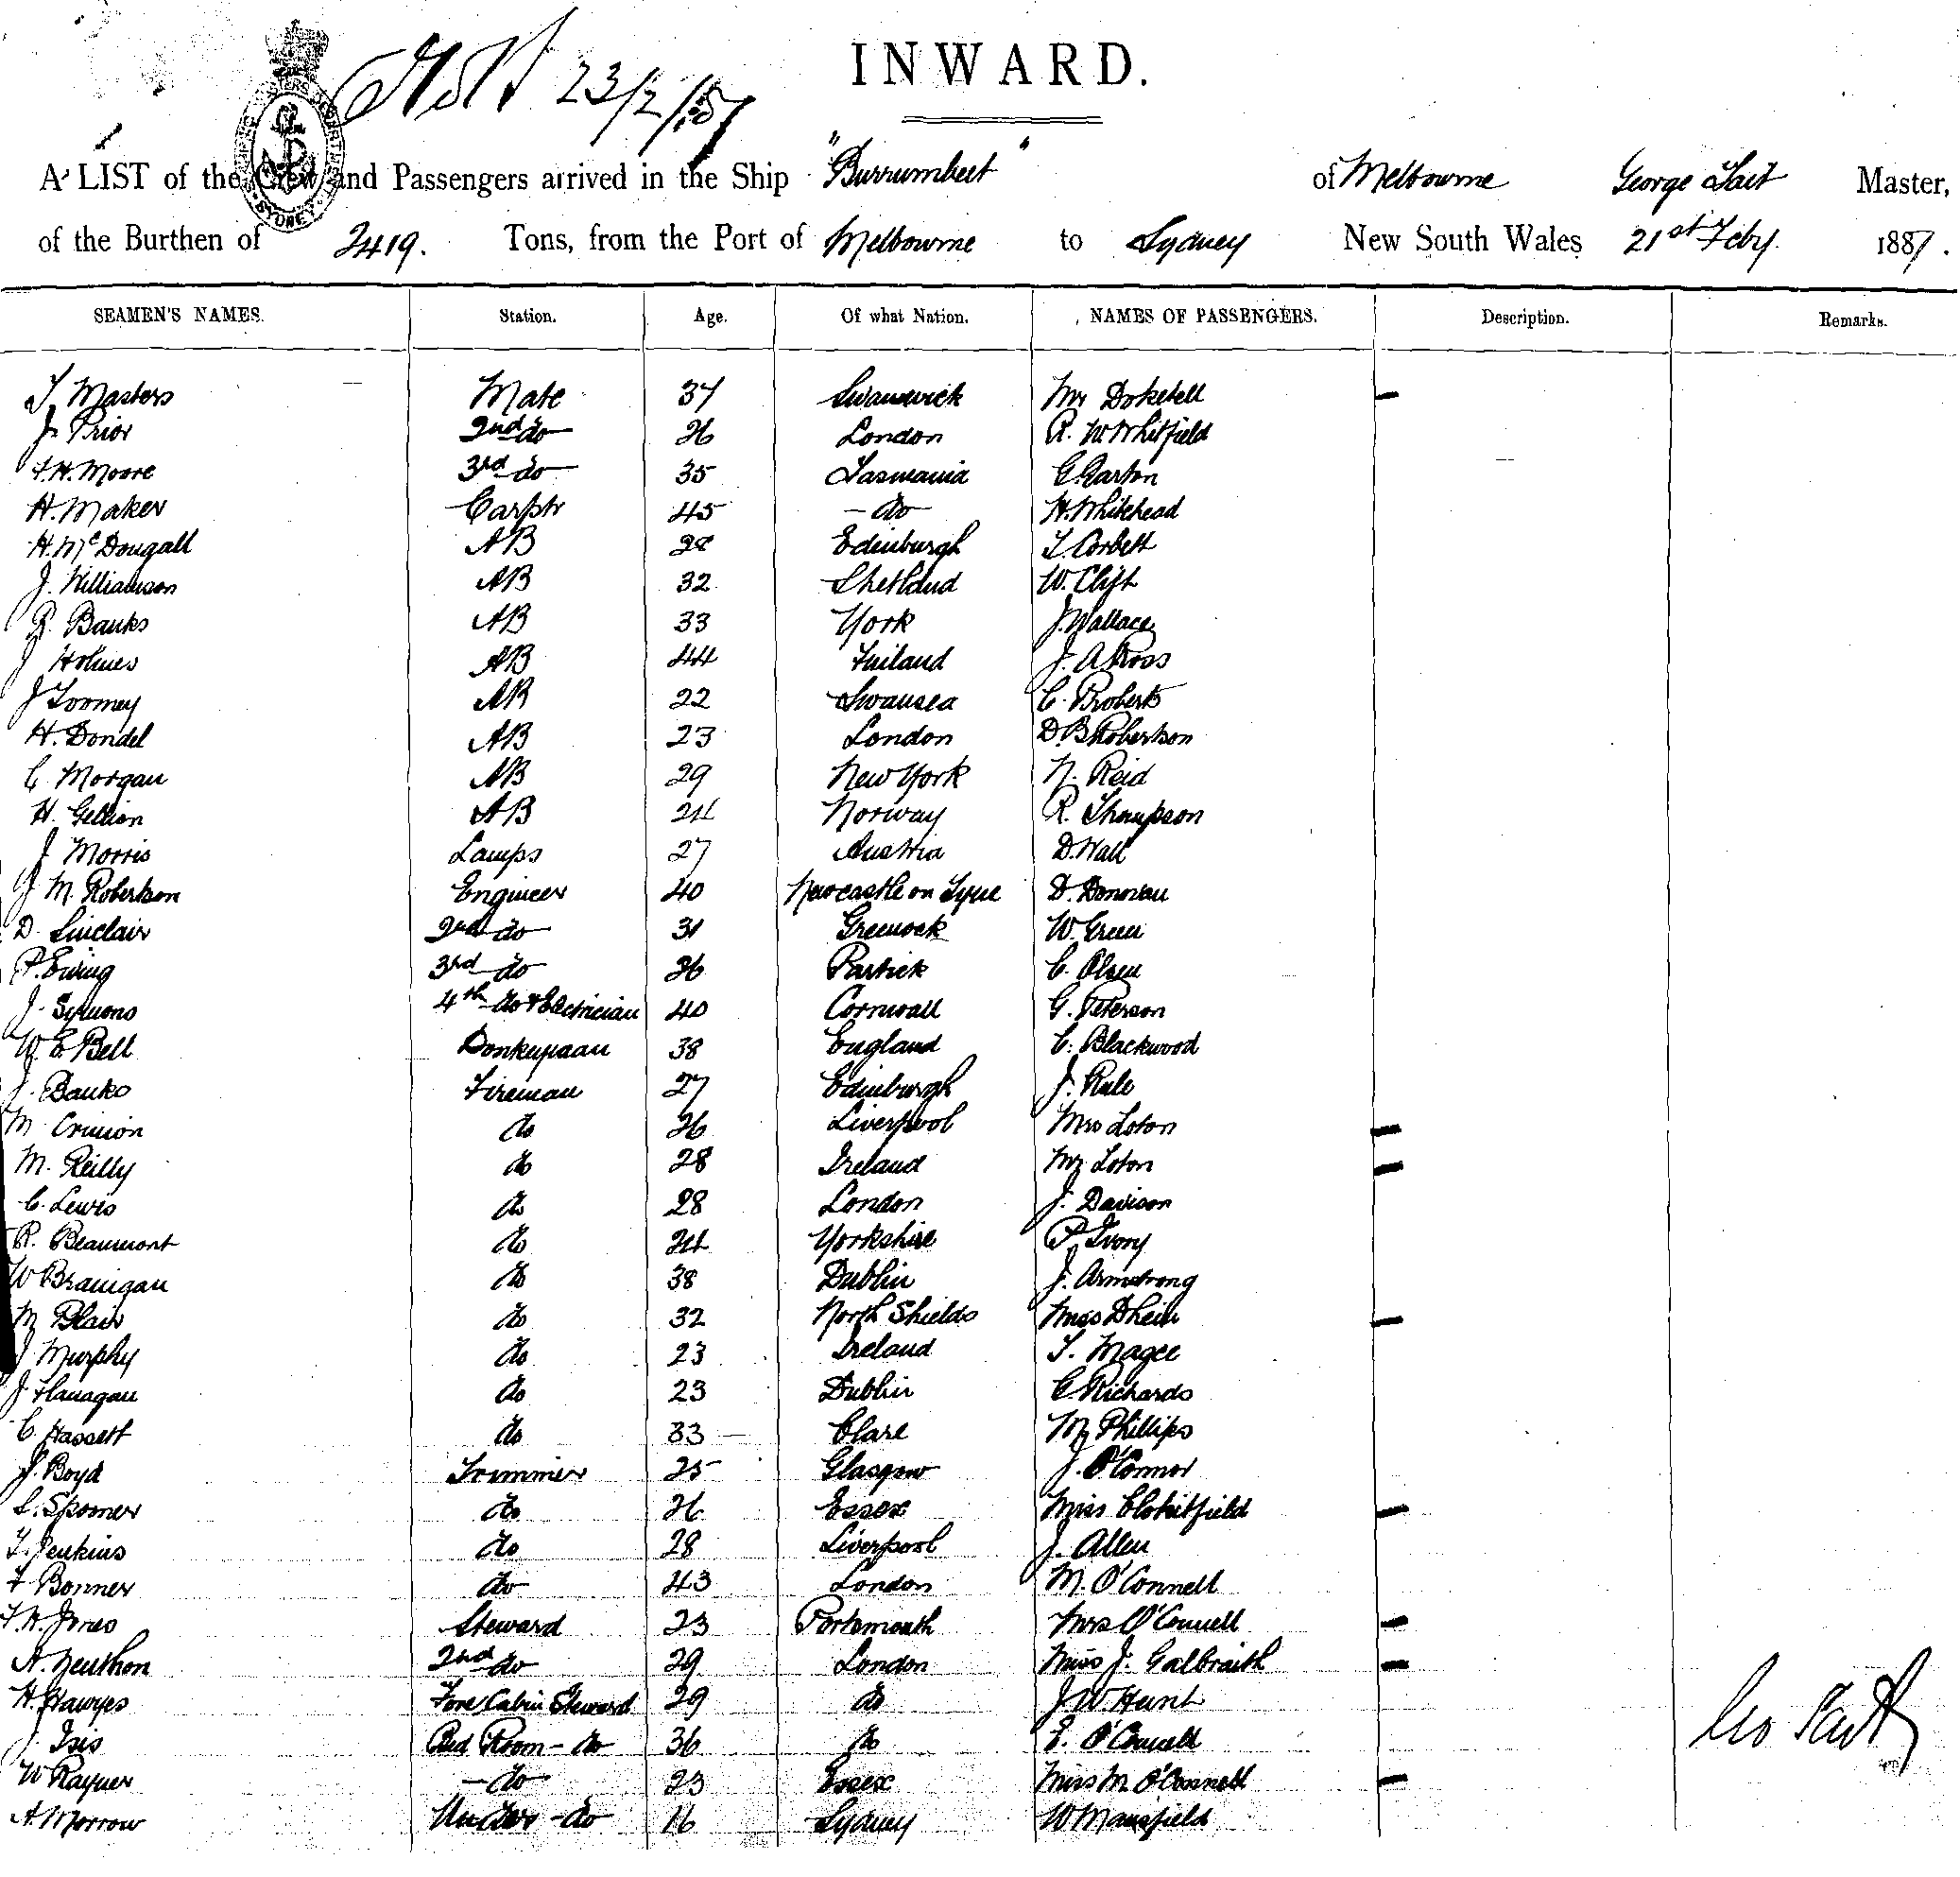 INWARD.
23/2/87
A LIST of the Crew and Passengers arrived in the Ship "Burrumbeet" of Melbourne George Tait Master,
of the Burthen of 2419. Tons, from the Port of Melbourne to Sydney New South Wales 21st Feby. 1887.
SEAMEN'S NAMES. Station. Age. Of what Nation. NAMES OF PASSENGERS. Description. Remarks.
T. Masters Mate 37 Swanwick Mr
J. Prior 2nd do 26 London R. W. Whitfield
F. H. Moore 3rd do 35 Tasmania G. Garton
H. Maker Carptr 45 - do - H. Whitehead
H. McDougall AB 28 Edinburgh T. Corbett
J. Williamson AB 32 Shetland W. Clift
R. Banks AB 33 York J. Wallace
J Holmes AB 44 Finland J. A Ross
J Toomey AB 22 Swansea C. Broberts
H. Dondel AB 23 London D. B Robertson
C. Morgan AB 29 New York N. Reid
H. Gellion AB 24 Norway R. Thompson
J Morris Lamps 27 Austria D. Wall
J. M. Robertson Engineer 40 Newcastle on Tyne D. Donovan
D. Sinclair 2nd do 31 Greenock W. Green
P. Ewing 3rd do 26 Partick C. Olsen
J. Symons 4th do & Electrician 40 Cornwall G. Peterson
W. E Bell Donkeyman 38 England C. Blackwood
J. Banks Fireman 27 Edinburgh J. Rule
M. Crinion do 26 Liverpool Mrs Loton
M. Reilly do 28 Ireland Mr Loton
C. Lewis do 28 London J. Davison
R. Beaumont do 24 Yorkshire P Ivory
W Branigan do 38 Dublin J. Armstrong
M Blair do 32 North Shields Miss Dhein
J Murphy do 23 Ireland T. Magee
J Flanagan do 23 Dublin C. Richards
C. Hassett do 33 Clare M Phillips
J. Boyd Trimmer 25 Glasgow J. O'Connor
S. Spooner do 26 Essex Miss
T. Jenkins do 28 Liverpool J. Allen
F Bonner do 43 London M. O'Connell
F. H. Jones Steward 23 Portsmouth Mrs O'Connell
A. Neuthon 2nd do 29 London Miss J. Galbraith
H. Hawyes Fore Cabin Steward 29 do J W. Hunt
J. Isis Bed Room - do 36 do E. O'Connell
W Rayner - do 23 Essex Miss M O'Connell
A. Morrow Under - do 16 Sydney W Mansfield
Geo Tait